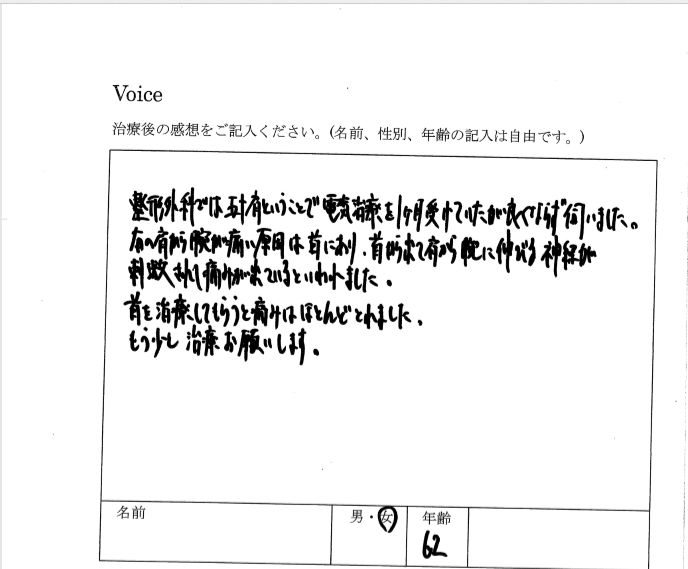 Voice
治療後の感想をご記入ください。(名前、性別、年齢の記入は自由です。)
整形外科では五十肩ということで電気治療を1ヶ月受けていたが良くならず伺いました。
右の肩から腕が痛い原因は首にあり、首から来て肩から腕に伸びる神経が
刺激されて痛みが出ているといわれました。
首を治療してもらうと痛みはほとんどとれました。
もう少し治療お願いします。
名前 男・女 年齢
62